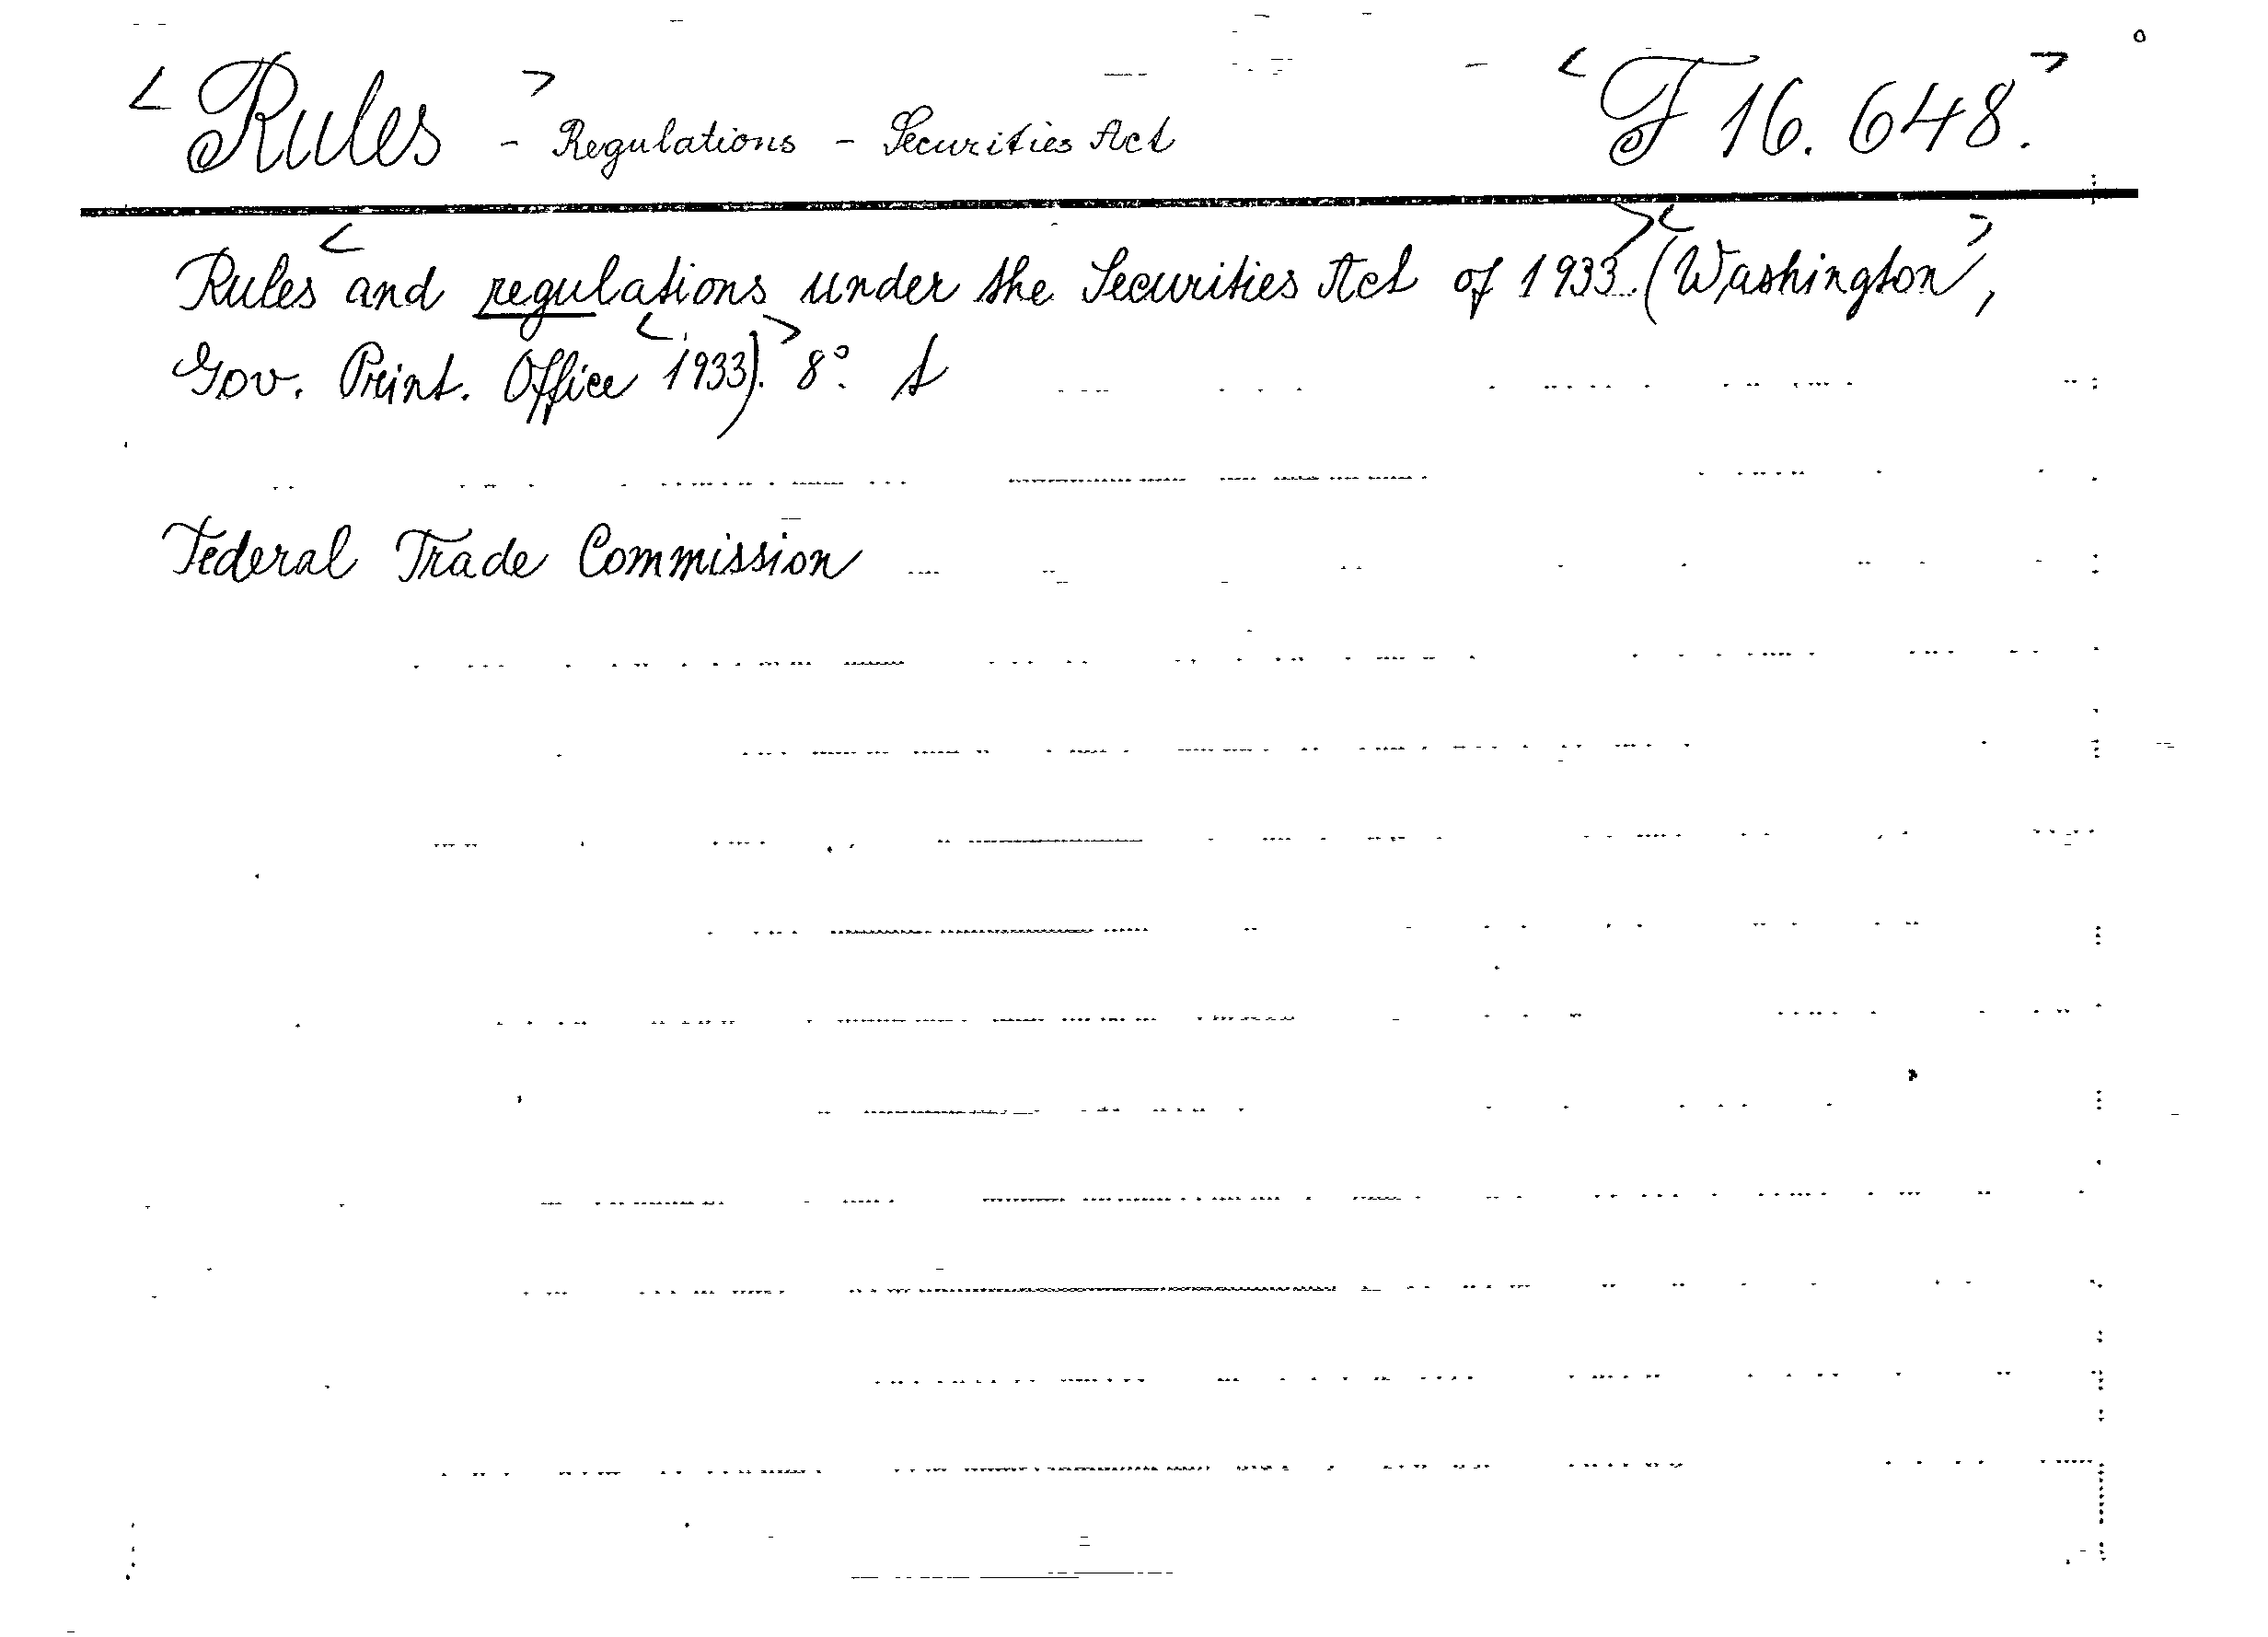 < Rules > - Regulations - Securities Act < F 16.648. >
Rules < and regulations under the Securities Act of 1933. > < (Washington >,
Gov. Print. Office < 1933). > 8°.
Federal Trade Commission